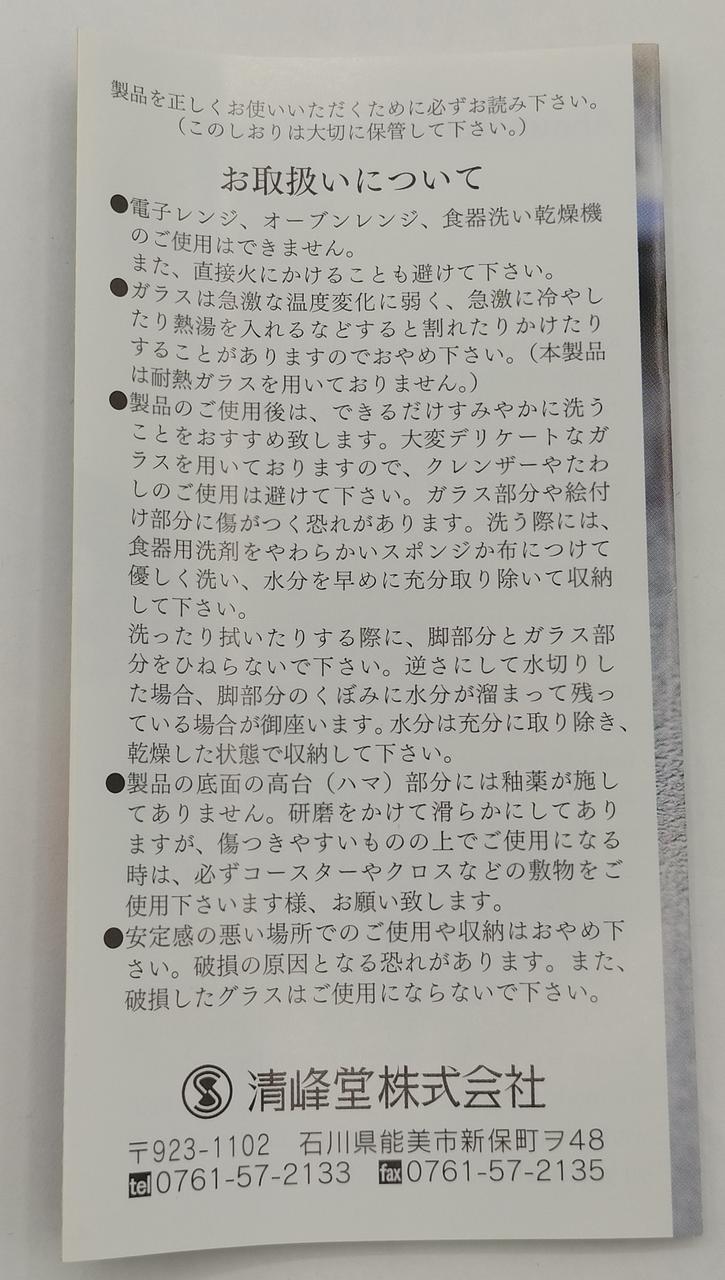 製品を正しくお使いいただくために必ずお読み下さい。
（このしおりは大切に保管して下さい。）
お取扱いについて
●電子レンジ、オーブンレンジ、食器洗い乾燥機
のご使用はできません。
また、直接火にかけることも避けて下さい。
●ガラスは急激な温度変化に弱く、急激に冷やし
たり熱湯を入れるなどすると割れたりかけたり
することがありますのでおやめ下さい。（本製品
は耐熱ガラスを用いておりません。）
●製品のご使用後は、できるだけすみやかに洗う
ことをおすすめ致します。大変デリケートなガ
ラスを用いておりますので、クレンザーやたわ
しのご使用は避けて下さい。ガラス部分や絵付
け部分に傷がつく恐れがあります。洗う際には、
食器用洗剤をやわらかいスポンジか布につけて
優しく洗い、水分を早めに充分取り除いて収納
して下さい。
洗ったり拭いたりする際に、脚部分とガラス部
分をひねらないで下さい。逆さにして水切りし
た場合、脚部分のくぼみに水分が溜まって残っ
ている場合が御座います。水分は充分に取り除き、
乾燥した状態で収納して下さい。
●製品の底面の高台（ハマ）部分には釉薬が施し
てありません。研磨をかけて滑らかにしてあり
ますが、傷つきやすいものの上でご使用になる
時は、必ずコースターやクロスなどの敷物をご
使用下さいます様、お願い致します。
●安定感の悪い場所でのご使用や収納はおやめ下
さい。破損の原因となる恐れがあります。また、
破損したグラスはご使用にならないで下さい。
清峰堂株式会社
〒923-1102 石川県能美市新保町ヲ48
tel 0761-57-2133 fax 0761-57-2135